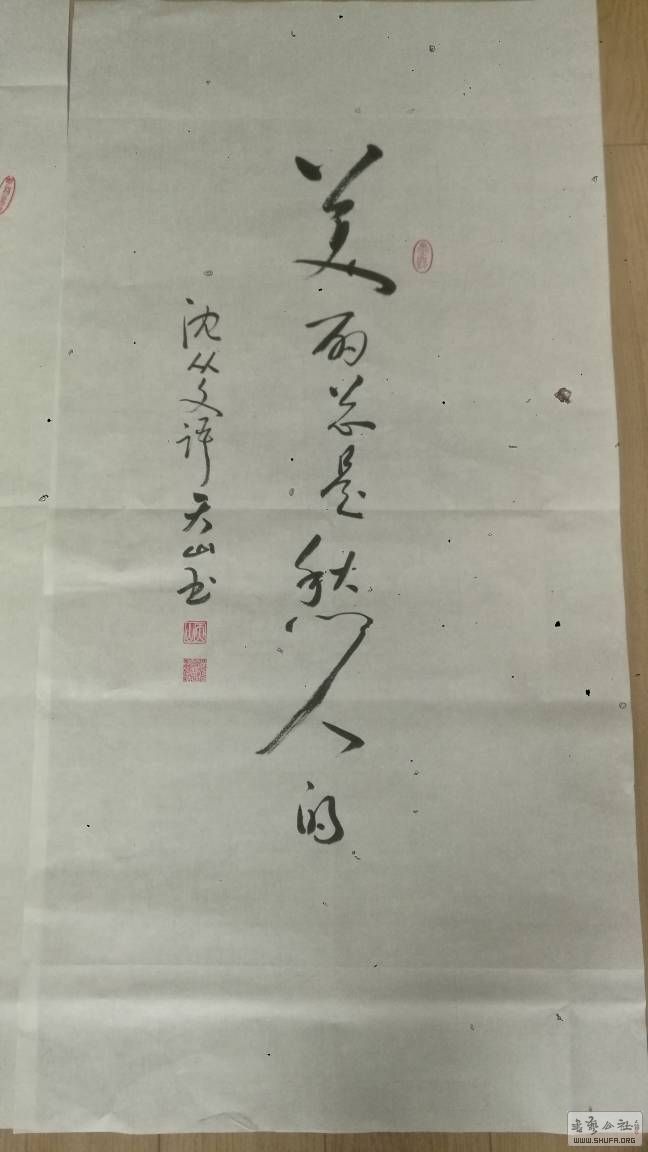 美丽总是愁人的
沈从文 天山书
书艺公社
WWW.SHUFA.ORG